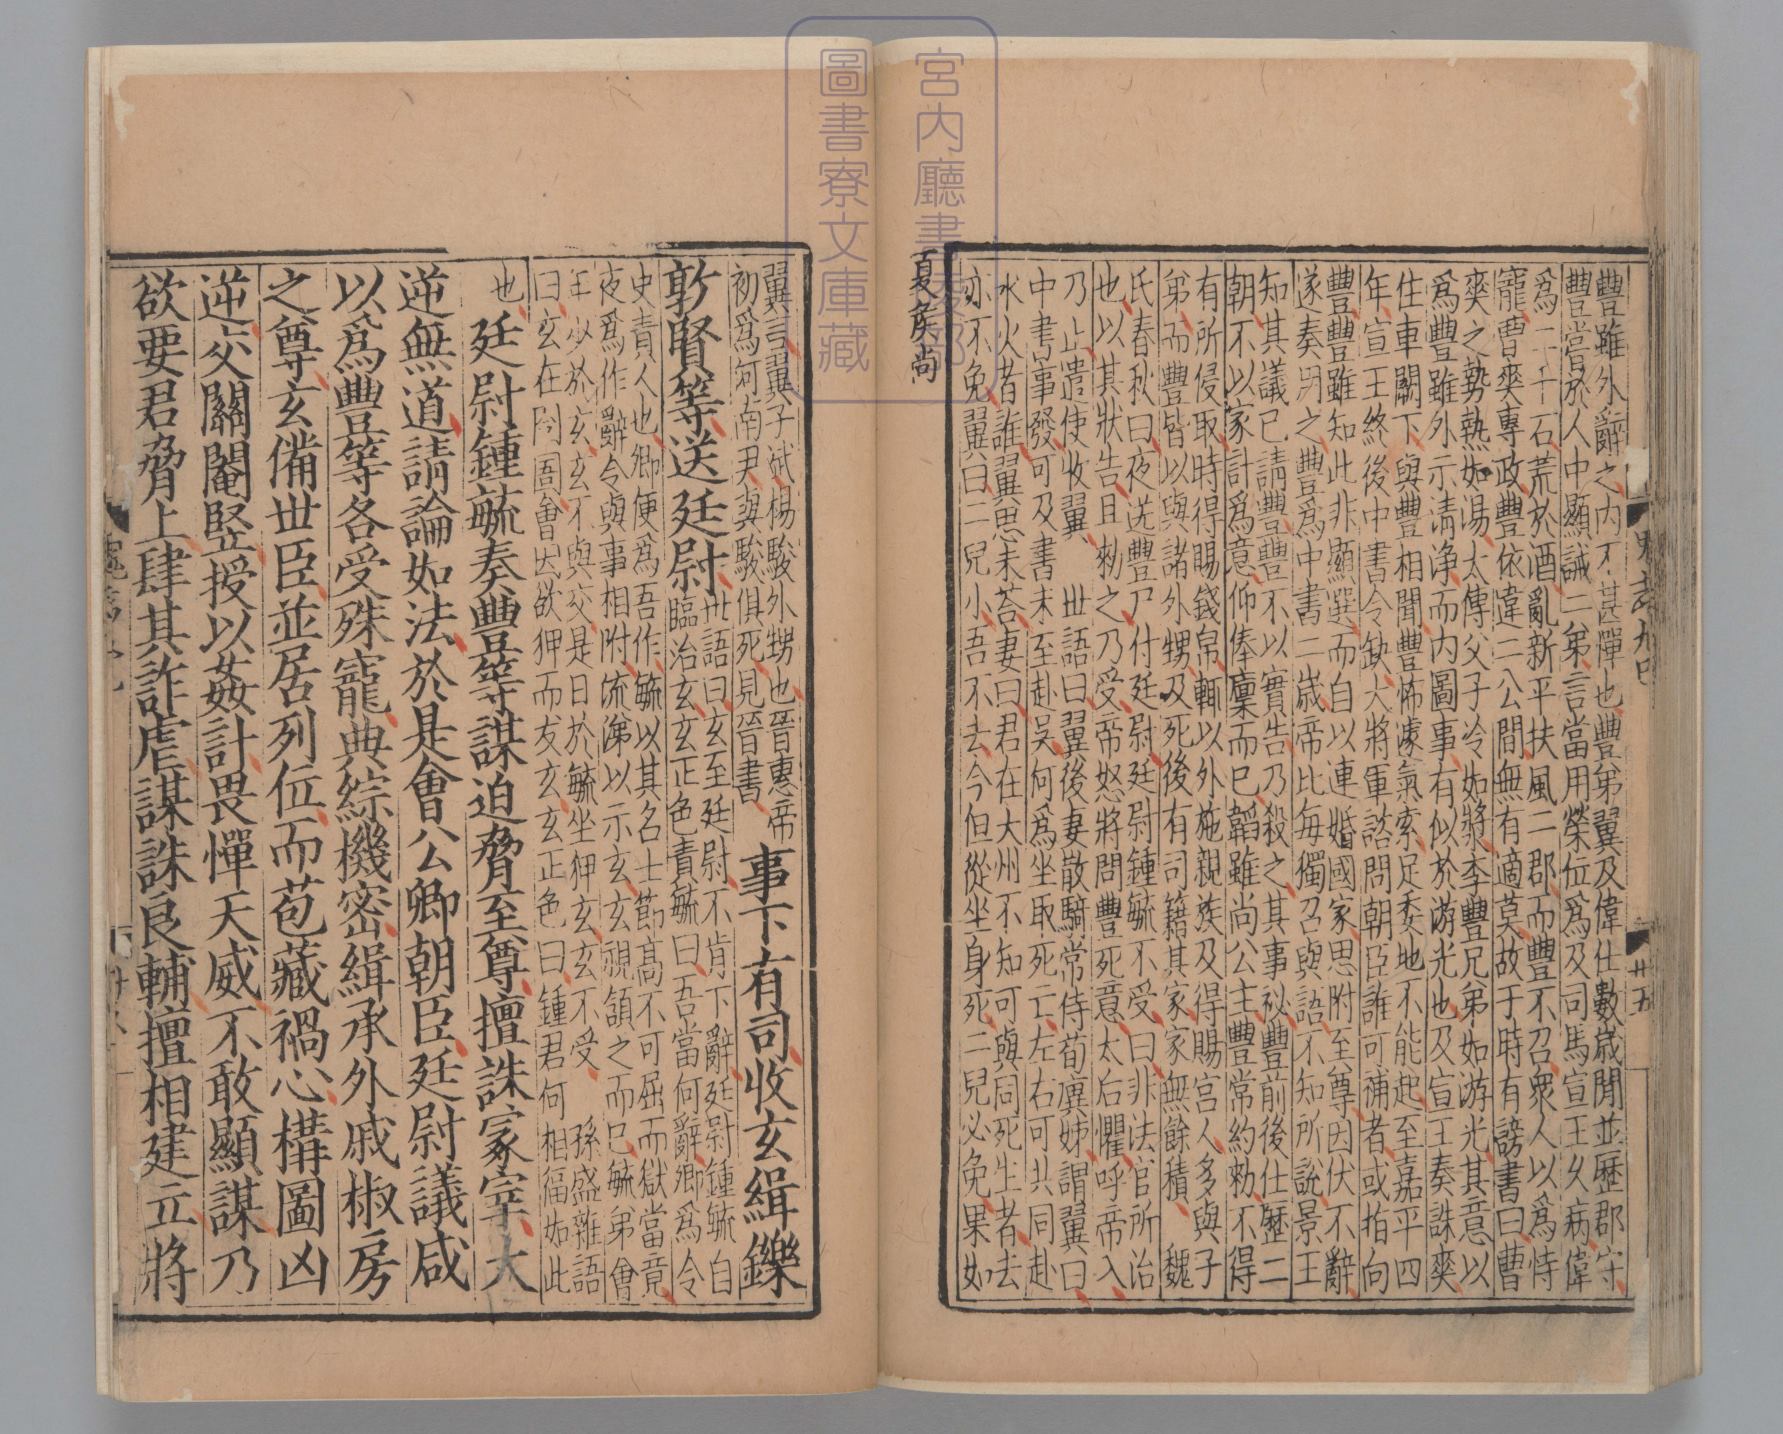 豐雖外辭之内不甚憚也豐弟翼及偉仕數歲閒並歷郡守
豐嘗於人中顯誡二弟言當用榮位爲及司馬宣王久病偉
爲二千石荒於酒亂新平扶風二郡而豐不召衆人以爲恃
寵曹爽專政豐依違二公間無有適莫故于時有謗書曰曹
爽之勢熱如湯太傅父子冷如漿李豐兄弟如游光其意以
爲豐雖外示清浄而内圖事有似於游光也及宣王奏誅爽
住車闕下與豐相聞豐怖遽氣索足委地不能起至嘉平四
年宣王終後中書令缺大將軍諮問朝臣誰可補者或指向
豐豐雖知此非顯選而自以連婚國家思附至尊因伏不辭
遂奏用之豐爲中書二歲帝比每獨召與語不知所說景王
知其議已請豐豐不以實告乃殺之其事祕豐前後仕歷二
朝不以家計爲意仰俸廩而已韜雖尚公主豐常約勑不得
有所侵取時得賜錢帛輒以外施親族及得賜宮人多與子
弟而豐皆以與諸外甥及死後有司籍其家家無餘積　魏
氏春秋曰夜送豐尸付廷尉廷尉鍾毓不受曰非法官所治
也以其狀告且勑之乃受帝怒將問豐死意太后懼呼帝入
乃止遣使收翼　世語曰翼後妻散騎常侍荀廙姊謂翼曰
中書事發可及書未至赴吳何爲坐取死亡左右可共同赴
水火者誰翼思未荅妻曰君在大州不知可與同死生者去
亦不免翼曰二兒小吾不去今但從坐身死二兒必免果如
夏侯尚
翼言翼子斌楊駿外甥也晉惠帝
初爲河南尹與駿俱死見晉書
事下有司收玄緝鑠
敦賢等送廷尉
世語曰玄至廷尉不肯下辭廷尉鍾毓自
臨治玄玄正色責毓曰吾當何辭卿爲令
史責人也卿便爲吾作毓以其名士節高不可屈而獄當竟
夜爲作辭令與事相附流涕以示玄玄視頷之而已毓弟會
年少於玄玄不與交是日於毓坐狎玄玄不受　孫盛雜語
曰玄在囹圄會因欲狎而友玄玄正色曰鍾君何相偪如此
也
廷尉鍾毓奏豐等謀迫脅至尊擅誅冢宰大
逆無道請論如法於是會公卿朝臣廷尉議咸
以爲豐等各受殊寵典綜機密緝承外戚椒房
之尊玄備世臣並居列位而苞藏禍心構圖凶
逆交關閹竪授以姦計畏憚天威不敢顯謀乃
欲要君脅上肆其詐虐謀誅良輔擅相建立將
宮内廳書陵部
圖書寮文庫藏